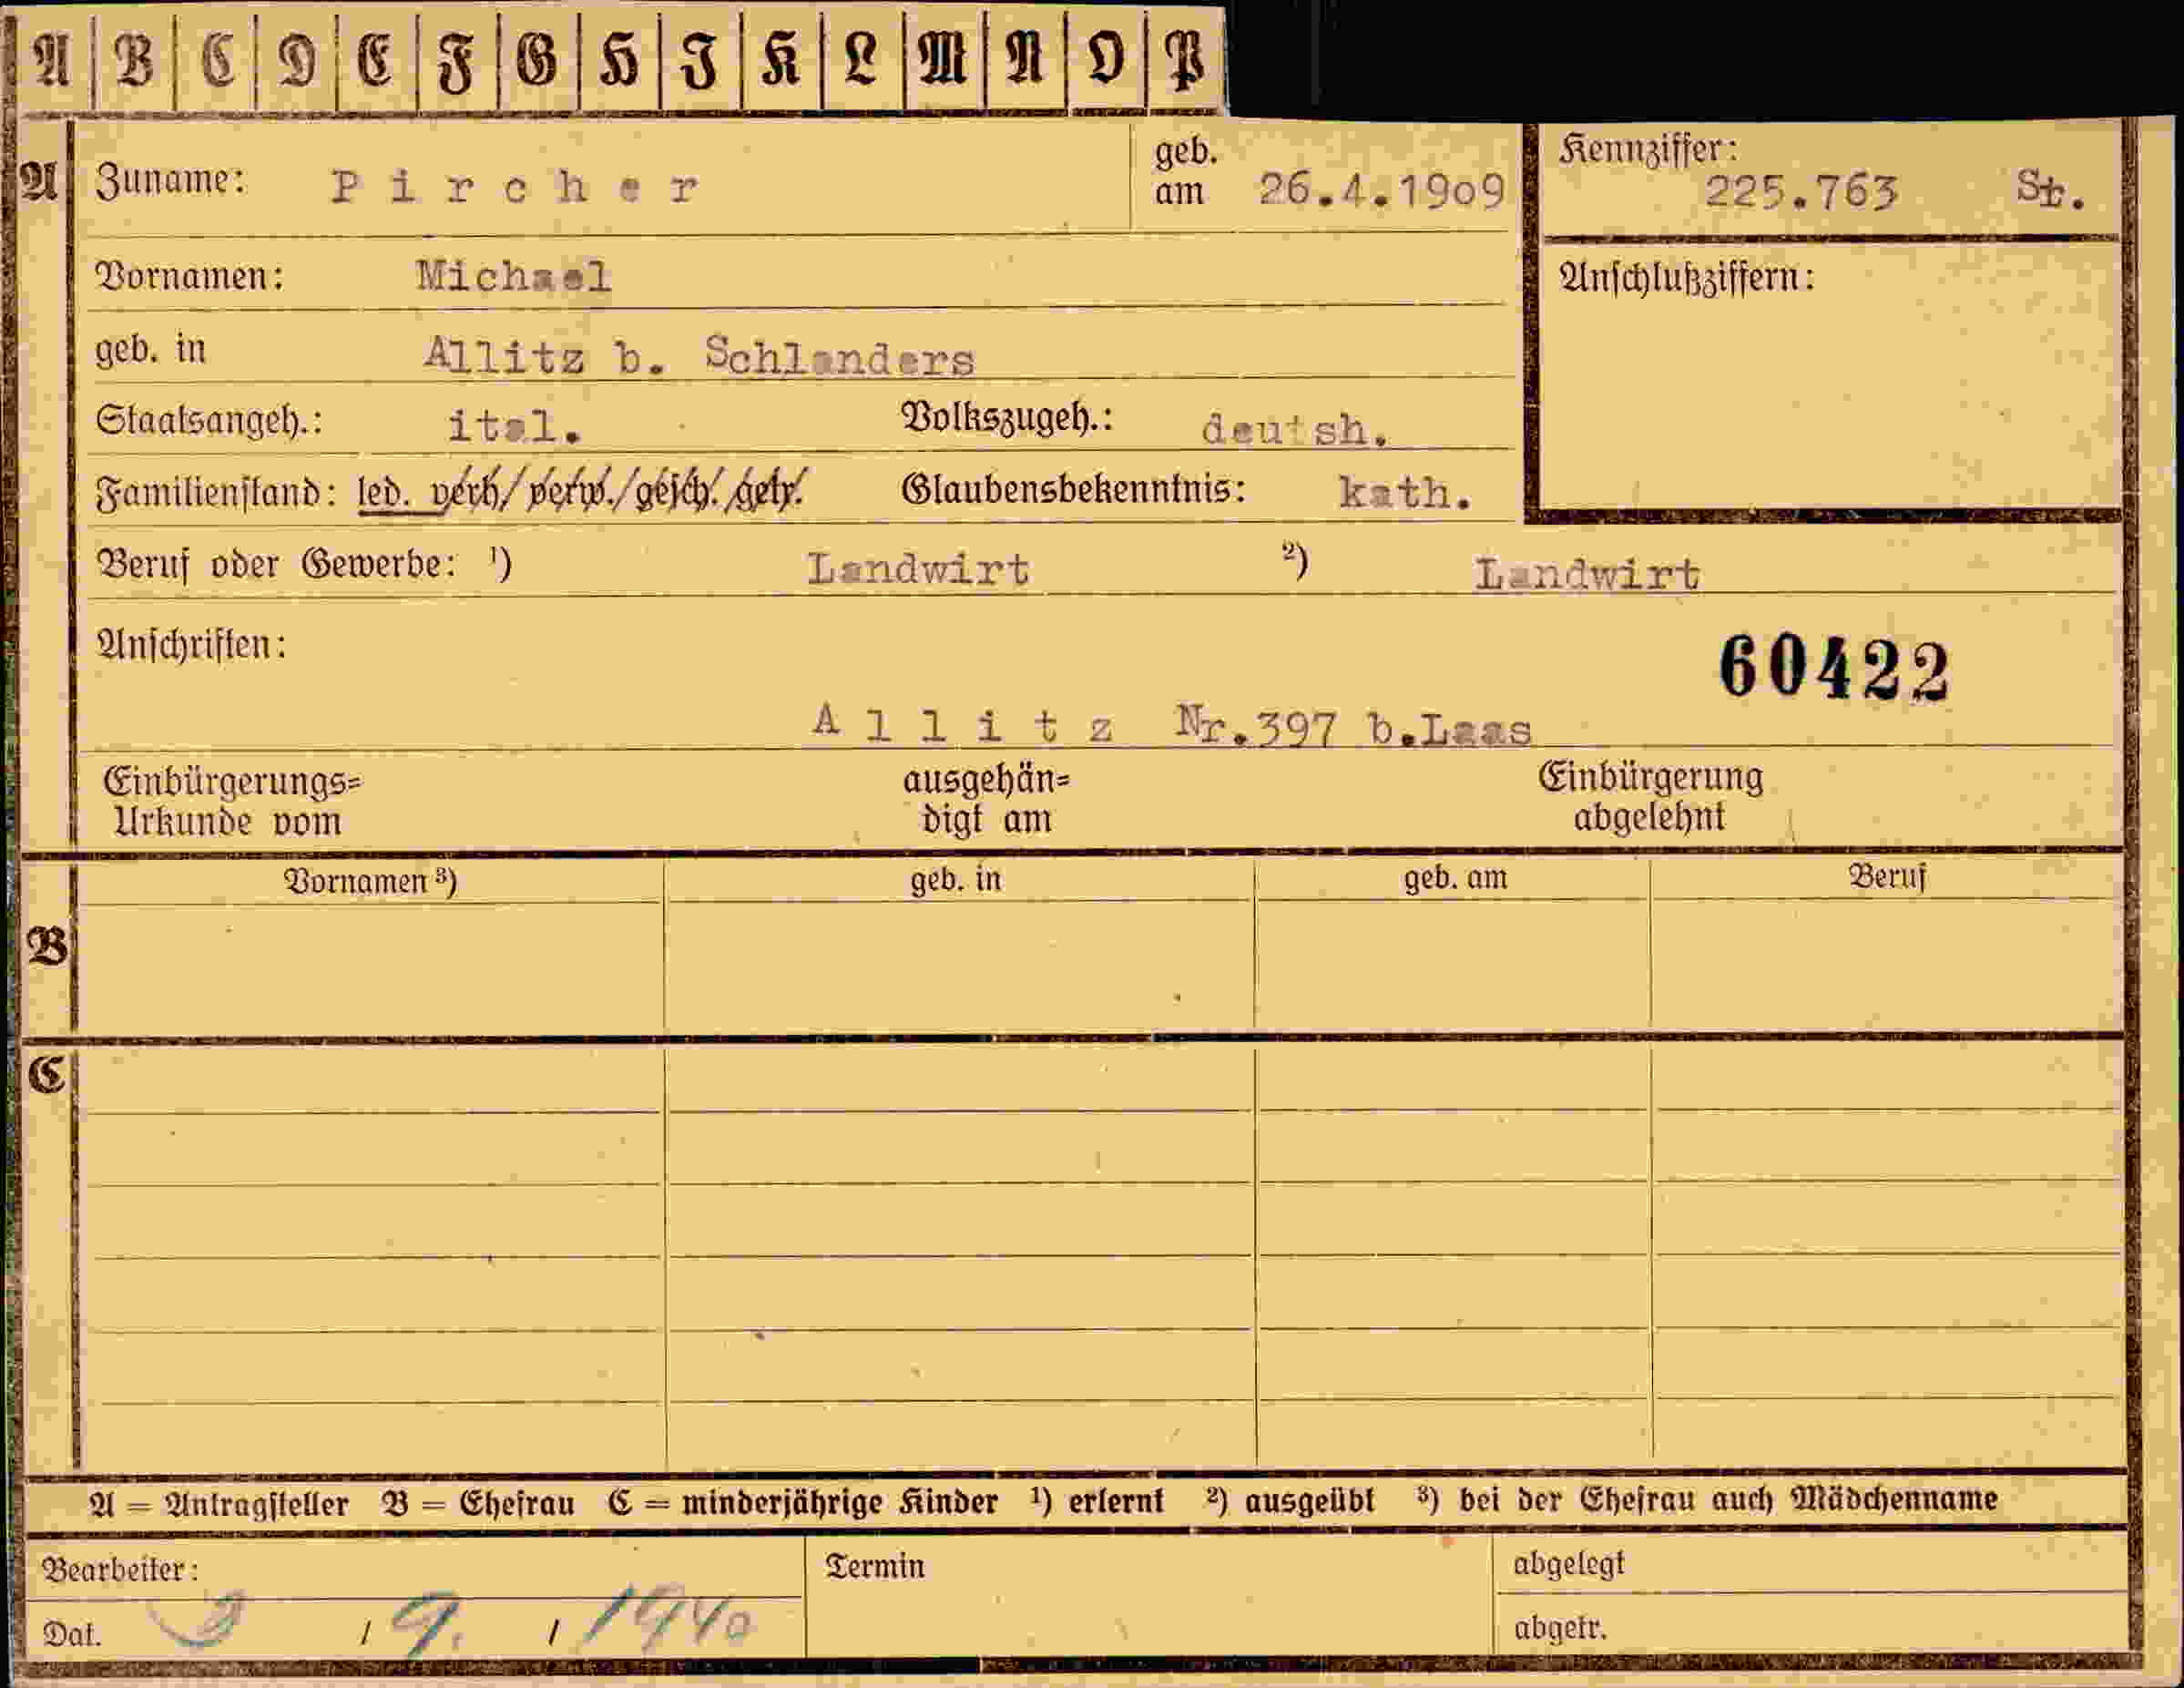 A B C D E F G H I K L M N O P
A Zuname: Pircher geb. am 26.4.1909 Kennziffer: 225.763 St.
Vornamen: Michael Anschlußziffern:
geb. in Allitz b. Schlanders
Staatsangeh.: ital. Volkszugeh.: deutsh.
Familienstand: led. verh/verw./gesch./getr. Glaubensbekenntnis: kath.
Beruf oder Gewerbe: ¹) Landwirt ²) Landwirt
Anschriften:
60422
Allitz Nr.397 b.Laas
Einbürgerungs= ausgehän= Einbürgerung
Urkunde vom digt am abgelehnt
Vornamen ³) geb. in geb. am Beruf
B
C
A = Antragsteller B = Ehefrau C = minderjährige Kinder ¹) erlernt ²) ausgeübt ³) bei der Ehefrau auch Mädchenname
Bearbeiter: Termin abgelegt
Dat. 3 / 9. / 1940 abgetr.